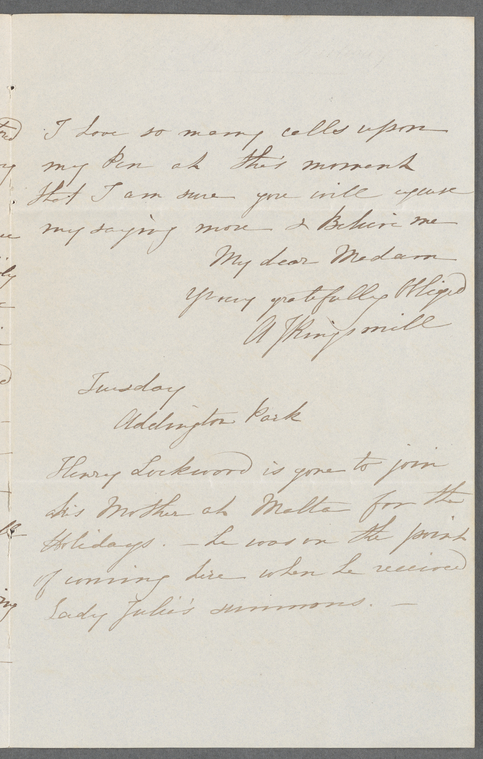 I have so many calls upon
my Pen at this moment
that I am sure you will excuse
my saying more & Believe me
My dear Madam
Yours gratefully Obliged
A J Kingsmill
Tuesday
Addington Park
Henry Lockwood is gone to join
his Mother at Malta for the
Holidays. — he was on the point
of coming here when he received
Lady Julia's summons. —